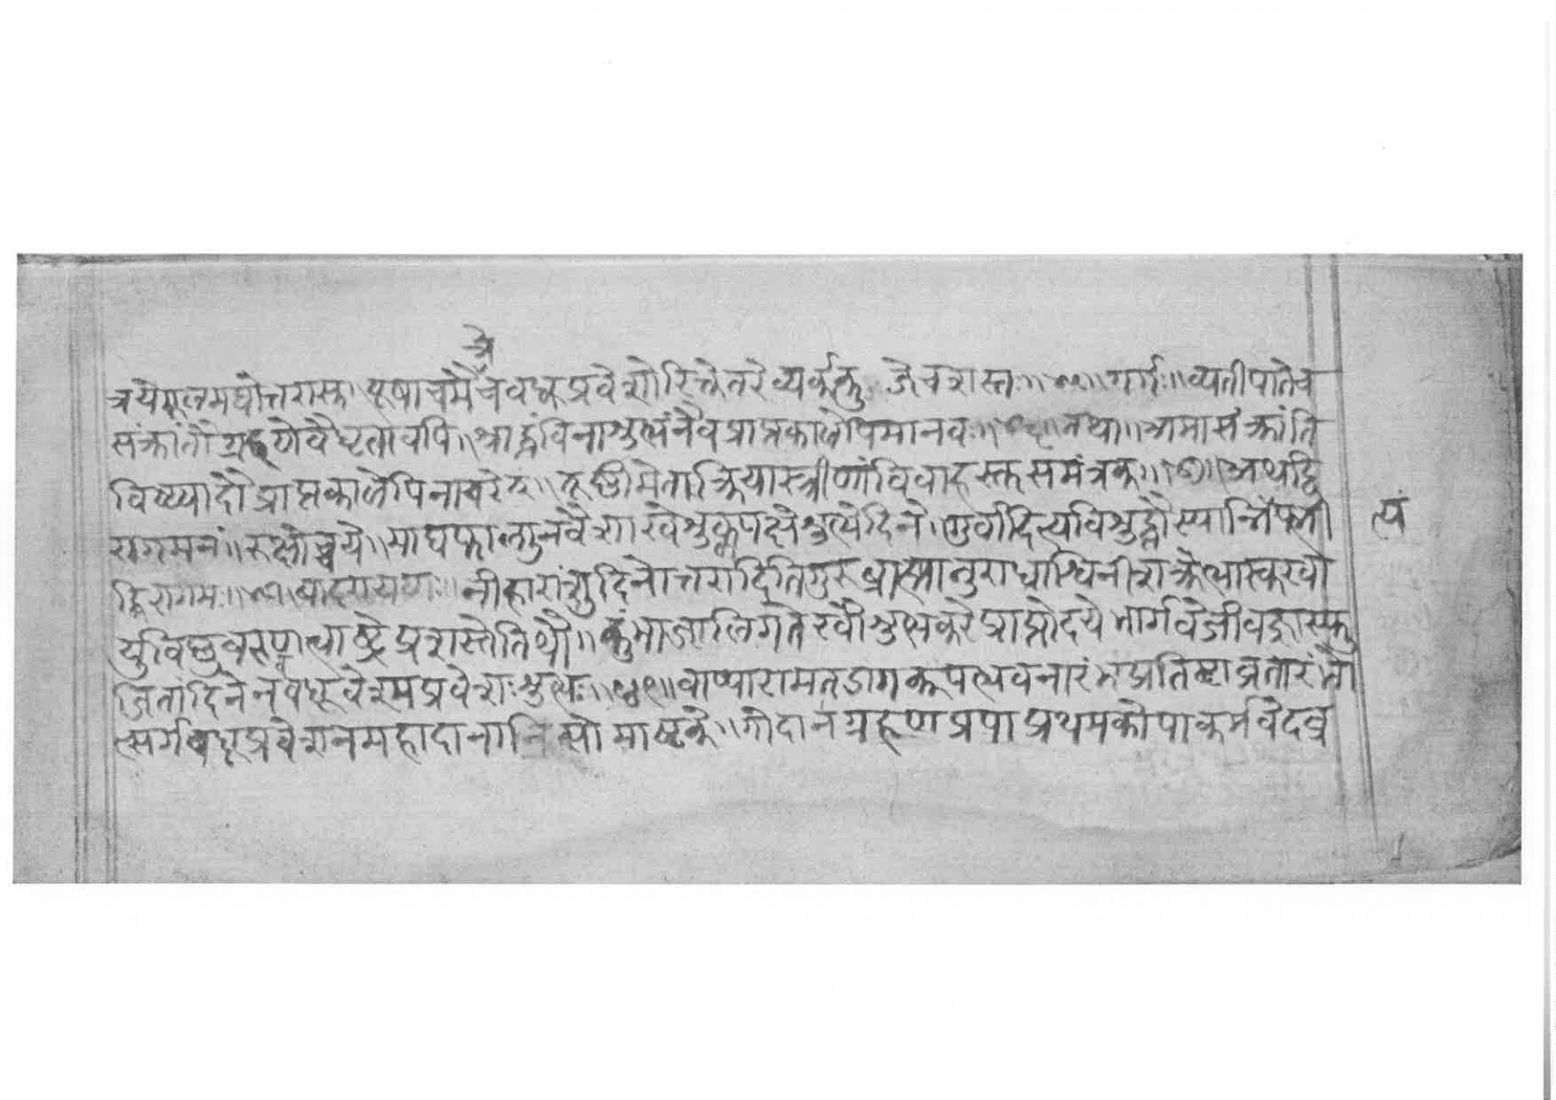 त्रे
त्रयेमूलमघोत्तरासु पूषाचमैचवधूप्रवेशोरिक्तेतरेव्यर्ककुजेचशस्तः॥ ॥गर्गः॥व्यतीपातेच
संक्रांतौग्रहणेवैधृतावपि॥श्राद्धंविनाशुभंनैवप्राप्तकालेपिमानवः॥ ॥तथा॥अमासंक्रांति
विष्ट्यादौप्राप्तकालेपिनाचरेत्॥तूष्णीमेताःक्रियास्त्रीणांविवाहस्तुसमंत्रकः॥ ॥अथद्वि
रागमनं॥ऋक्षोच्चये॥माघफाल्गुनवैशाखेशुक्लपक्षेशुभेदिने॥गुर्वादित्यविशुद्धौस्यान्नित्यंपत्नी
त्यं
द्विरागमः॥ ॥बादरायणः॥नीहारांशुदिनोत्तरादितिगुरुब्राह्मानुराधाश्विनीशक्रेभास्करवा
युविष्णुवरुणत्वाष्ट्रेप्रशस्तेतिथौ॥कुंभाजालिगतेरवौशुभकरेप्राप्तोदयेभार्गवेजीवज्ञास्फु
जितांदिनेनवधूवेश्मप्रवेशःशुभः॥ ॥वाप्यारामतडागकूपभवनारंभप्रतिष्ठाव्रतारंभो
त्सर्गवधूप्रवेशनमहादानानिसोमाष्टके॥गोदानग्रहणप्रपाप्रथमकोपाकर्मवेदव्र